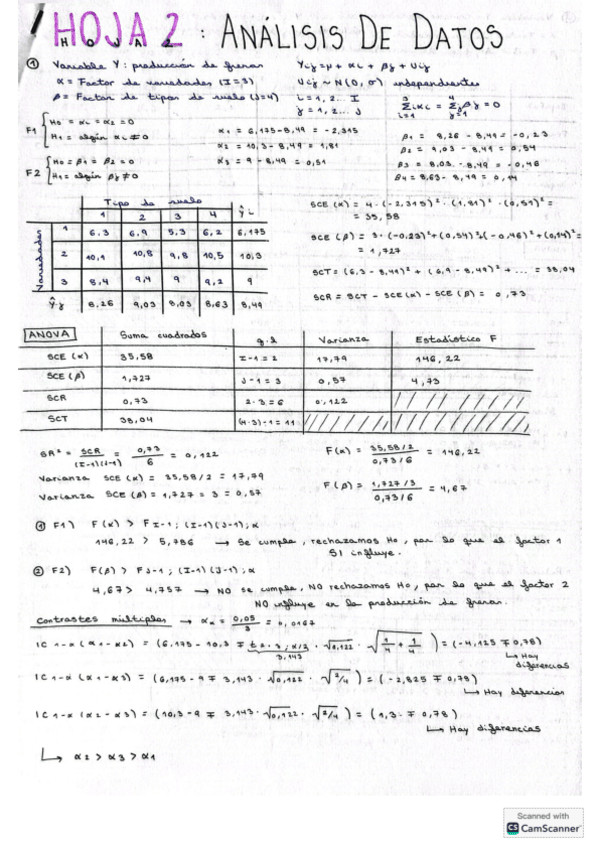 HOJA 2 : ANÁLISIS DE DATOS
① Variable Y: producción de fresas
Yij = μ + αi + βj + Uij
α = Factor de variedades (I=3)
Uij ~ N(0, σ) independientes
β = Factor de tipos de suelo (J=4)
i = 1, 2... I
j = 1, 2... J
F1 { H0 = αi = α2 = 0
H1 = algún αi ≠ 0
α1 = 6,175 - 8,49 = -2,315
α2 = 10,3 - 8,49 = 1,81
α3 = 9 - 8,49 = 0,51
β1 = 8,26 - 8,49 = -0,23
β2 = 9,03 - 8,49 = 0,54
β3 = 8,03 - 8,49 = -0,46
β4 = 8,63 - 8,49 = 0,14
F2 { H0 = β1 = β2 = 0
H1 = algún βj ≠ 0
Tipo de suelo
1 2 3 4 ŷi
Variedades
1 6,3 6,9 5,3 6,2 6,175
2 10,1 10,8 9,8 10,5 10,3
3 8,4 9,4 9 9,2 9
ŷj 8,26 9,03 8,03 8,63 8,49
SCE (α) = 4 · (-2,315)² · (1,81)² · (0,51)² =
= 35,58
SCE (β) = 3 · (-0,23)² + (0,54)² (-0,46)² + (0,14)² =
= 1,727
SCT = (6,3 - 8,49)² + (6,9 - 8,49)² + ... = 38,04
SCR = SCT - SCE (α) - SCE (β) = 0,73
ANOVA Suma cuadrados g.l Varianza Estadístico F
SCE (α) 35,58 I-1 = 2 17,79 146,22
SCE (β) 1,727 J-1 = 3 0,57 4,73
SCR 0,73 2·3 = 6 0,122
SCT 38,04 (4·3)-1 = 11
SR² = SCR / (I-1)(J-1) = 0,73 / 6 = 0,122
Varianza SCE (α) = 35,58/2 = 17,79
Varianza SCE (β) = 1,727 = 3 = 0,57
F(α) = 35,58/2 / 0,73/6 = 146,22
F(β) = 1,727/3 / 0,73/6 = 4,67
① F1) F(α) > F I-1; (I-1)(J-1); α
146,22 > 5,786 → Se cumple, rechazamos H0, por lo que el factor 1
SI influye.
② F2) F(β) > F J-1; (I-1)(J-1); α
4,67 > 4,757 → NO se cumple, NO rechazamos H0, por lo que el factor 2
NO influye en la producción de fresas.
Contrastes múltiples → α* = 0,05 / 3 = 0,0167
IC 1-α (α1-α2) = (6,175 - 10,3 ∓ t2·3; α/2 · √0,122 · √1/4 + 1/4) = (-4,125 ∓ 0,78)
3,143
↳ Hay
diferencias
IC 1-α (α1-α3) = (6,175 - 9 ∓ 3,143 · √0,122 · √2/4) = (-2,825 ∓ 0,78)
↳ Hay diferencias
IC 1-α (α2-α3) = (10,3 - 9 ∓ 3,143 · √0,122 · √2/4) = (1,3 ∓ 0,78)
↳ Hay diferencias
↳ α2 > α3 > α1
Scanned with
CS CamScanner